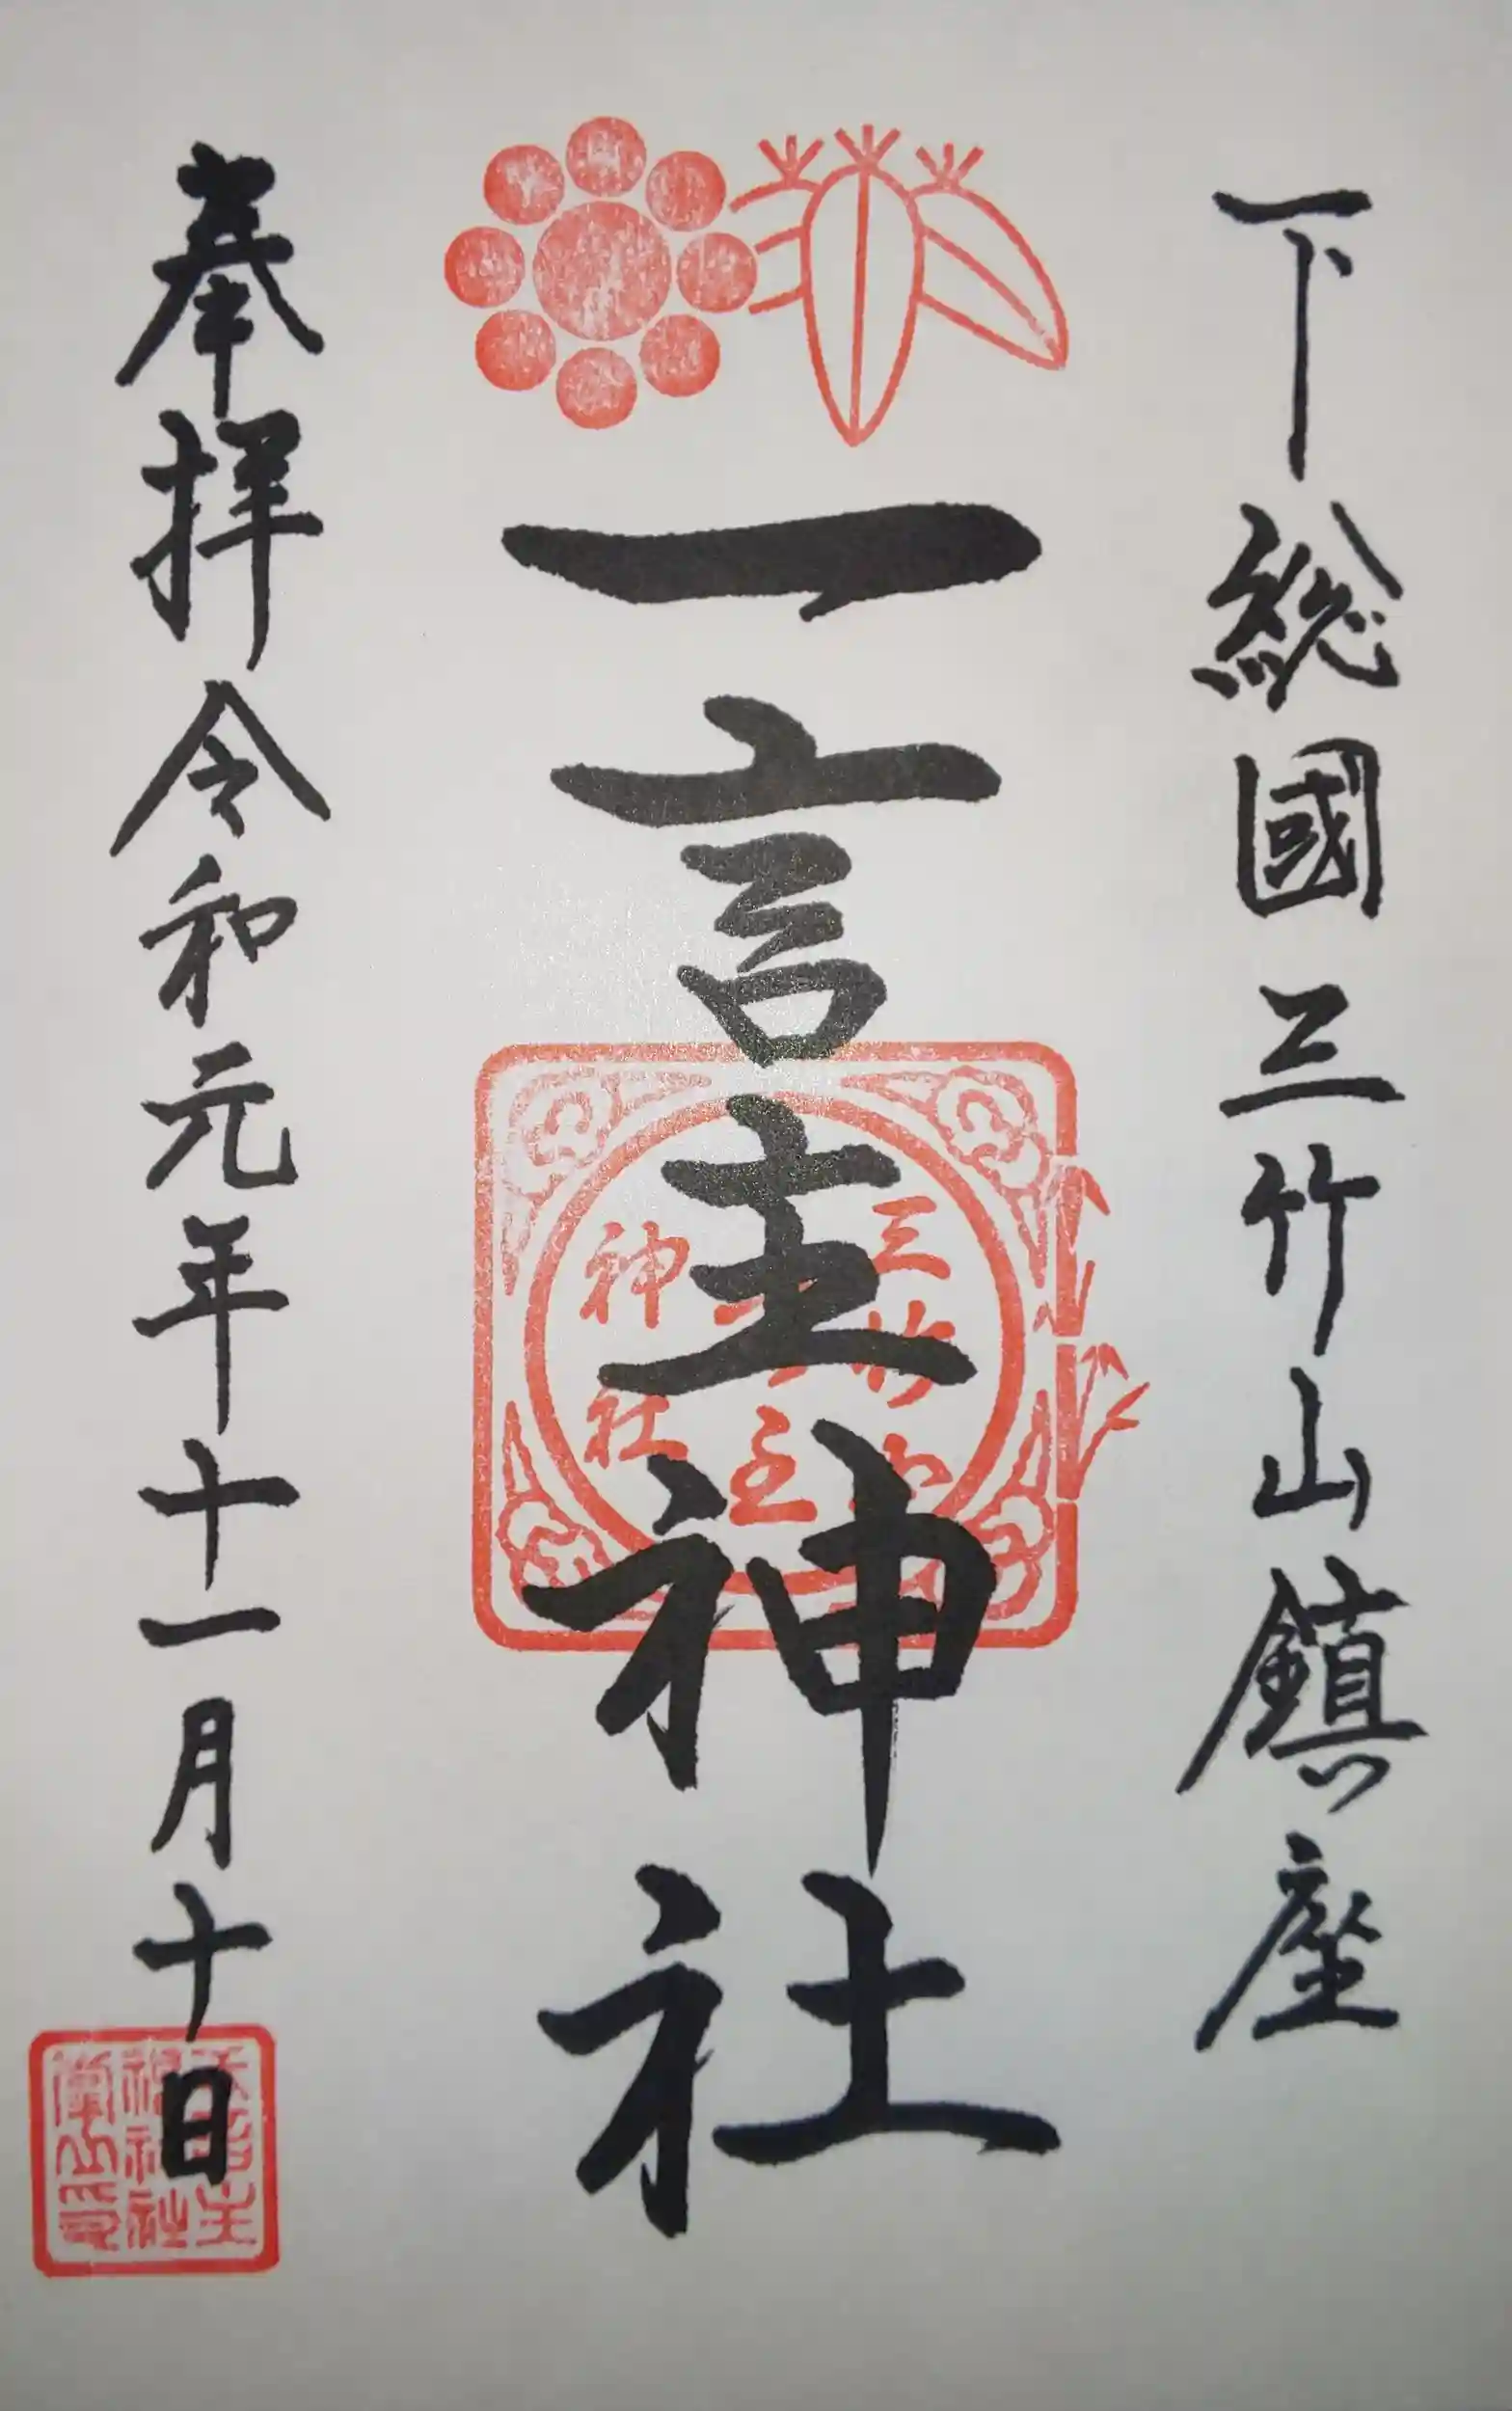 下総國三竹山鎮座
一言主神社
三竹山
一言主
神社
奉拝令和元年十一月十日